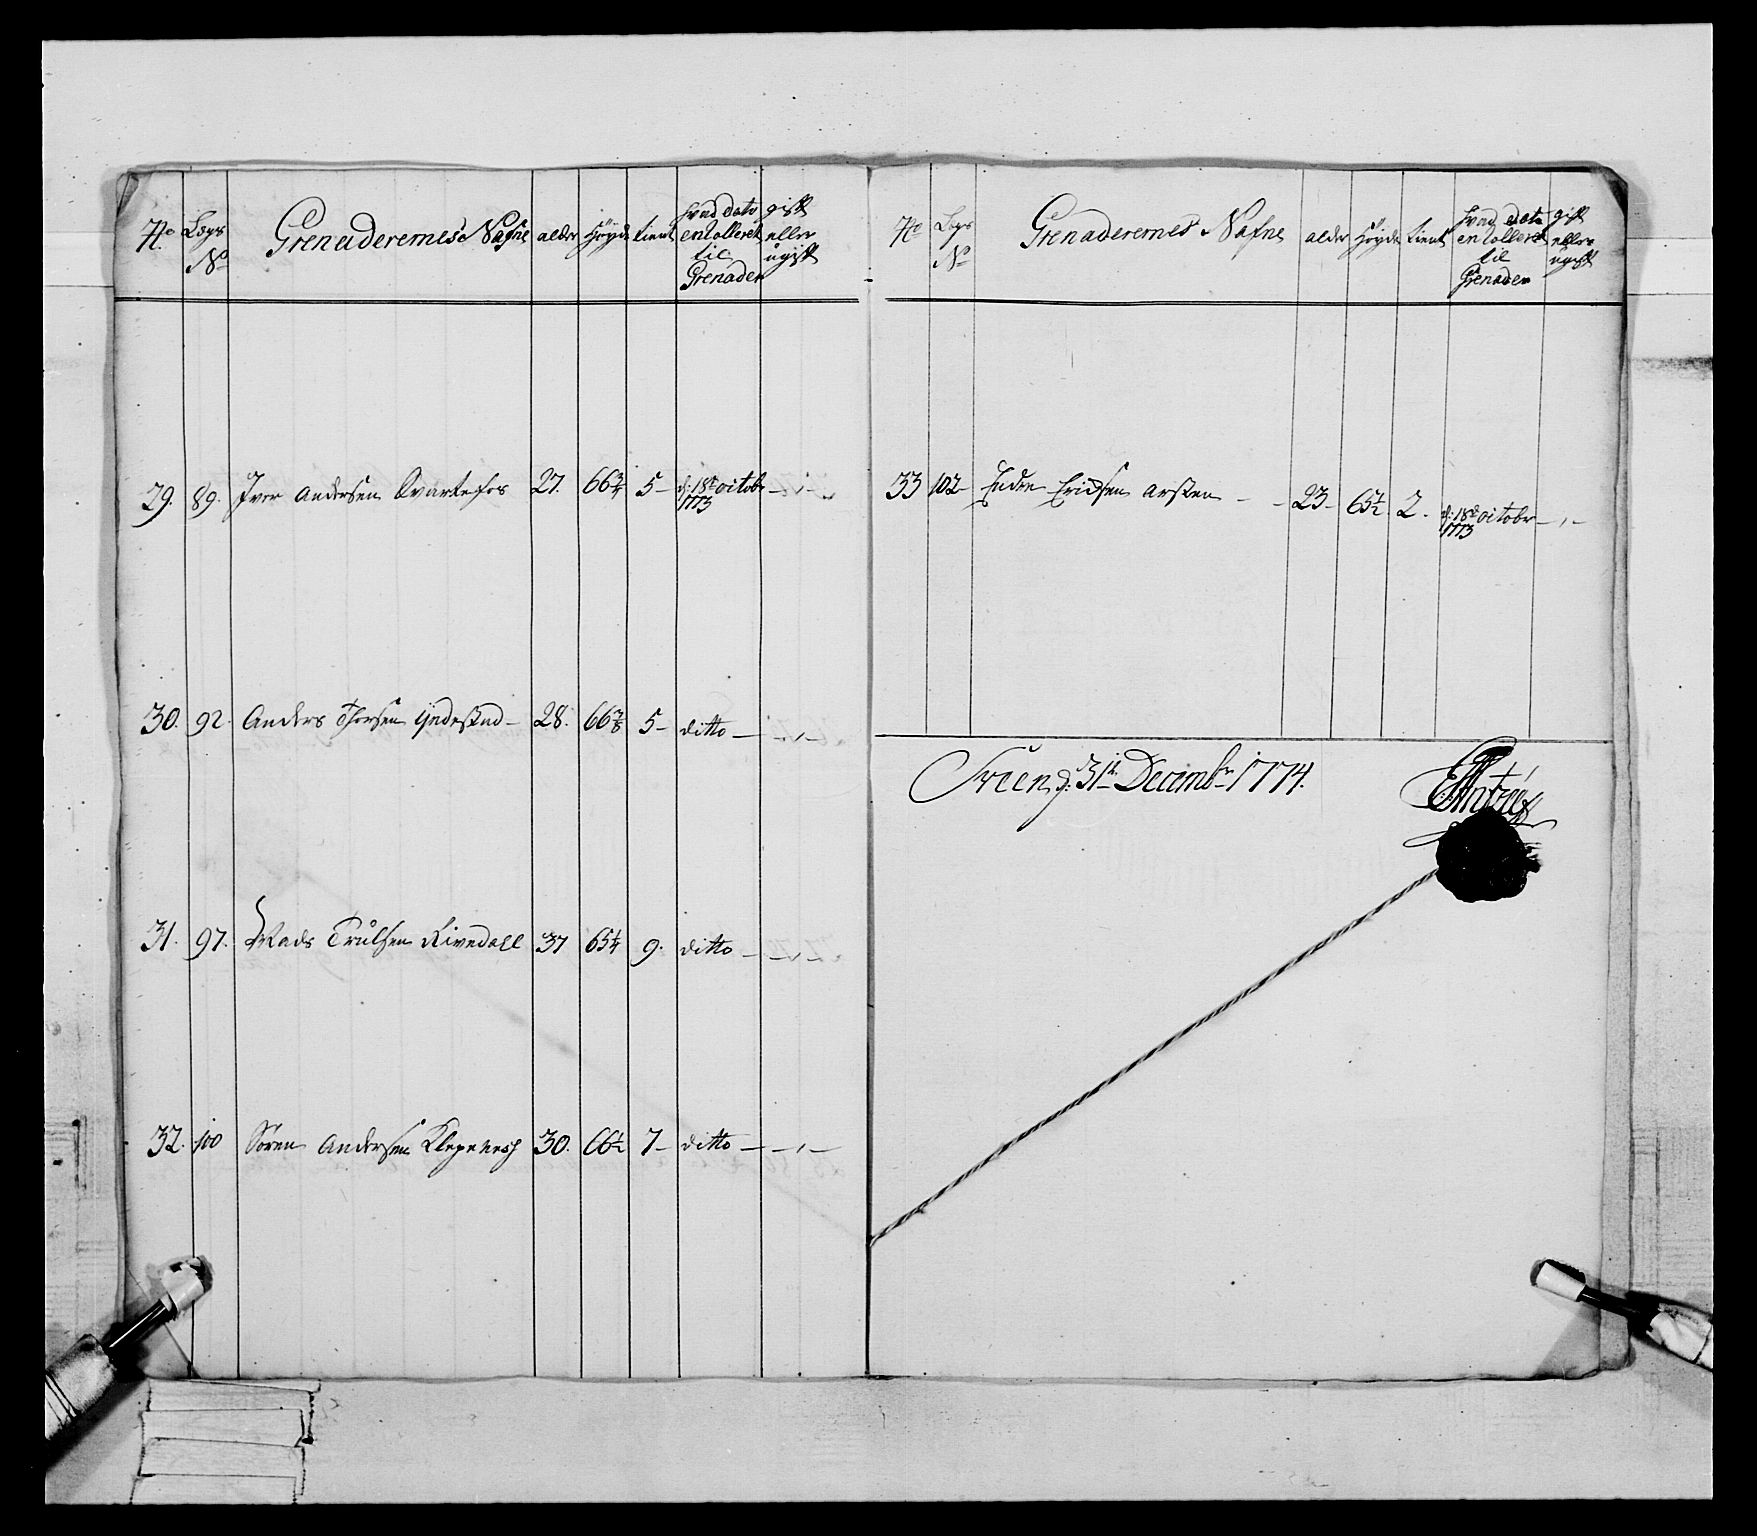 No Lægs No Grenaderernes Nafne alder Høyde tient hvad dato enrolleret til Grenader gift eller ugift
29. 89. Iver Andersen Qvartefos 27. 66 3/4 5 d: 18de octobr 1773 - " -
30. 92. Anders Thorsen 28. 66 7/8 5 ditto - " -
31. 97. Mads Trulsen Rivedall 37 65 1/4 9. ditto - " -
32. 100 Sören Andersen Klepenesh 30. 66 1/2 7 ditto - " -
No Lægs No Grenaderernes Nafne alder Høyde tient hvad dato enrolleret til Grenader gift eller ugift
33 102 Endre Erichsen Arsten 23 65 1/2 2. d: 18de octobr 1773 - " -
Sveen d: 31te Decembr 1774.